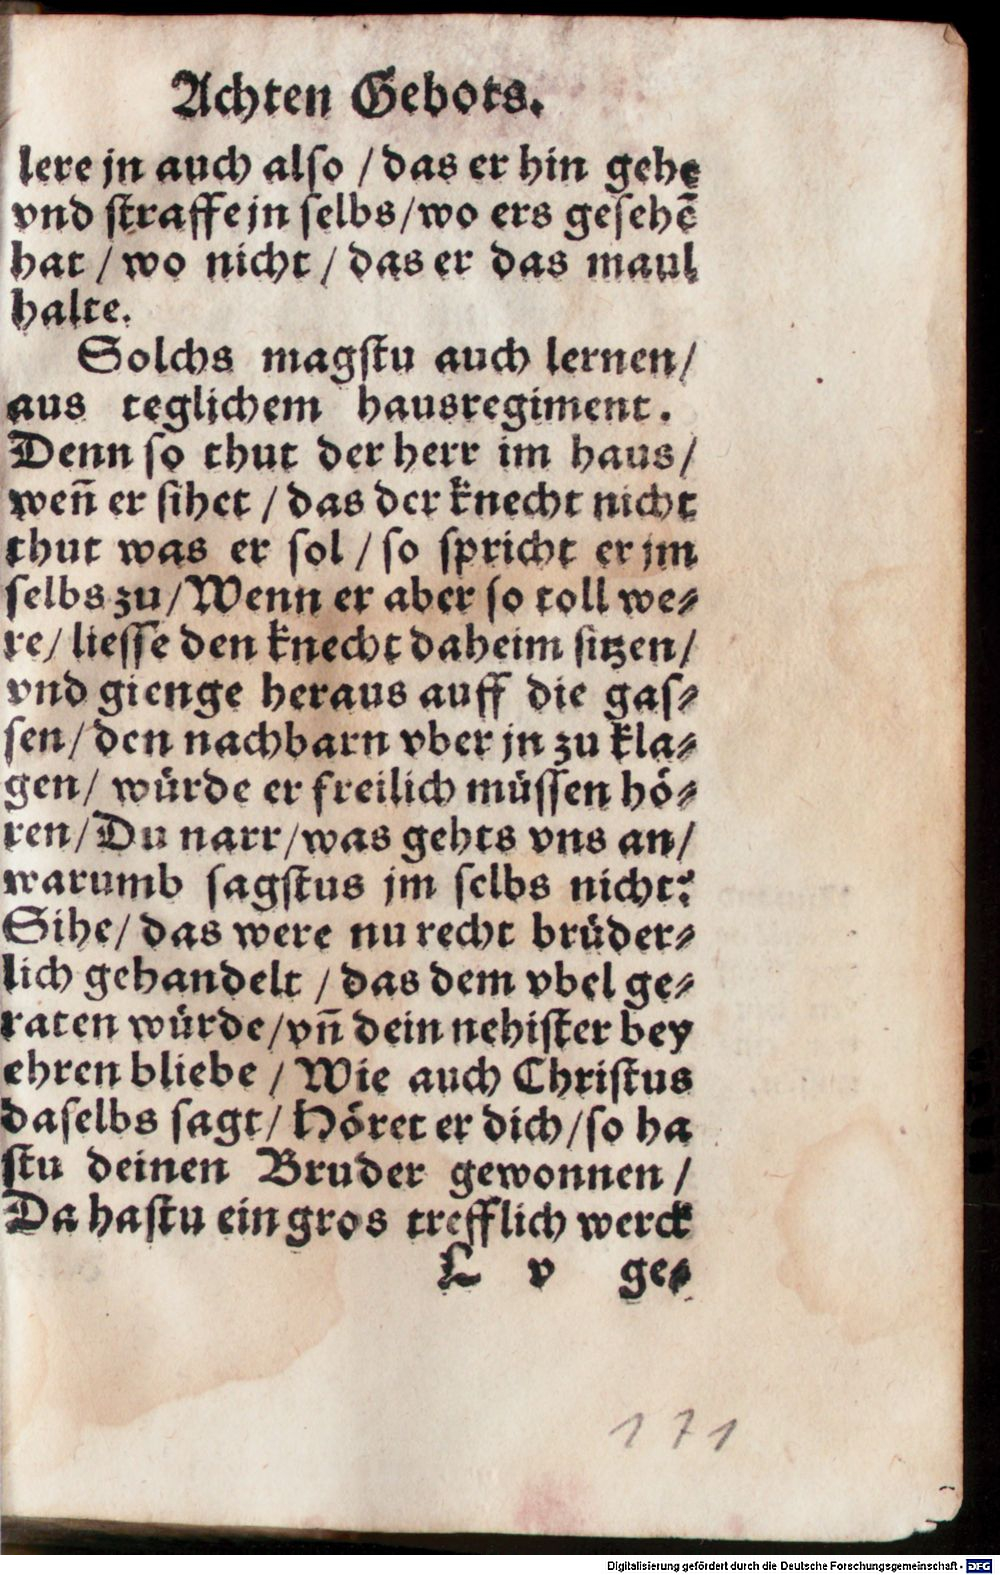 Achten Gebots.
lere jn auch also / das er hin gehe
vnd straffe jn selbs / wo ers gesehẽ
hat / wo nicht / das er das maul
halte.
Solchs magstu auch lernen /
aus teglichem hausregiment.
Denn so thut der herr im haus /
weñ er sihet / das der knecht nicht
thut was er sol / so spricht er jm
selbs zu / Wenn er aber so toll we⸗
re / liesse den knecht daheim sitzen /
vnd gienge heraus auff die gas⸗
sen / den nachbarn vber jn zu kla⸗
gen / würde er freilich müssen hö⸗
ren / Du narr / was gehts vns an /
warumb sagstus jm selbs nicht?
Sihe / das were nu recht brüder⸗
lich gehandelt / das dem vbel ge⸗
raten würde / vñ dein nehister bey
ehren bliebe / Wie auch Christus
daselbs sagt / Höret er dich / so ha
stu deinen Bruder gewonnen /
Da hastu ein gros trefflich werck
L v ge⸗
171
Digitalisierung gefördert durch die Deutsche Forschungsgemeinschaft - DFG